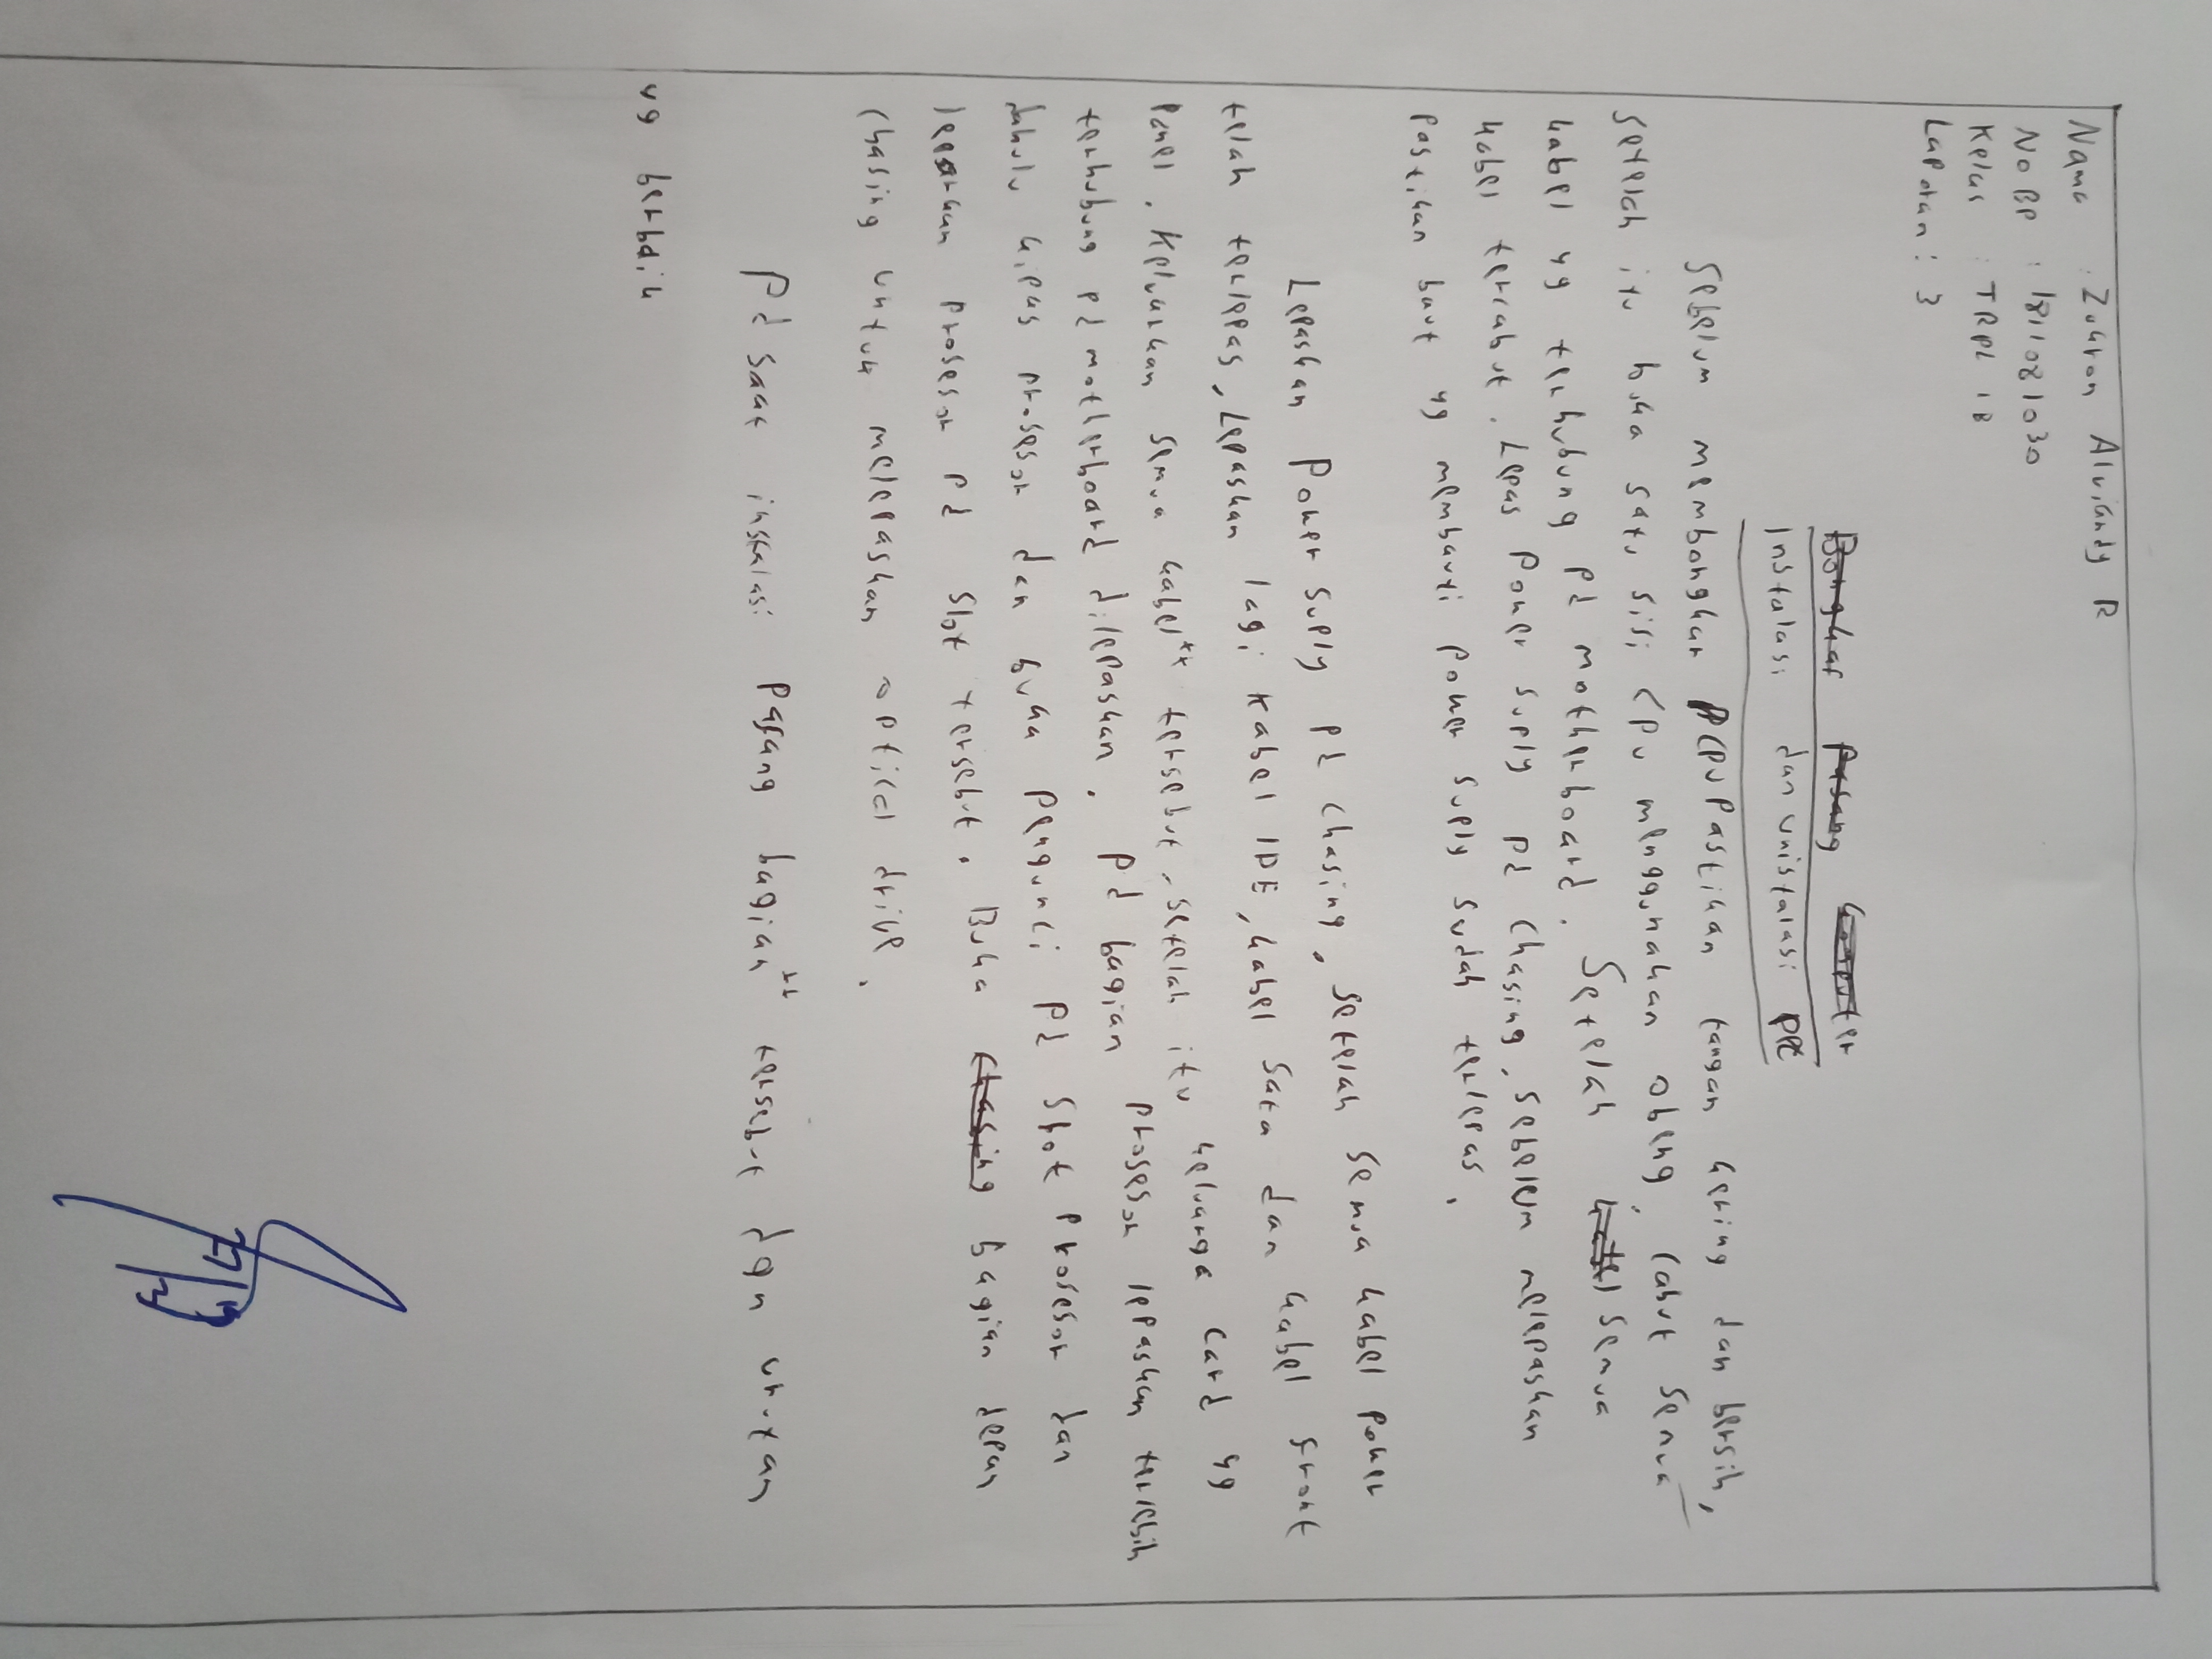 Nama : Zukron Alviandy R
No BP : 1811081030
Kelas : TRPL 1B
Laporan : 3
Bongkar Pasang komputer
Instalasi dan unistalasi PC
Sebelum membongkar CPU Pastikan tangan kering dan bersih,
setelah itu buka satu sisi CPU menggunakan obeng, Cabut semua
kabel yg terhubung pd motherboard. Setelah kabel semua
kabel tercabut. Lepas Power Suply pd Chasing, sebelum melepaskan
Pastikan baut yg membauti power suply sudah terlepas.
Lepaskan Power suply pd chasing, setelah semua kabel power
telah terlepas, Lepaskan lagi Kabel IDE, kabel Sata dan kabel front
Panel. Keluarkan semua kabel** tersebut. setelah itu keluarga card yg
terhubung pd motherboard dilepaskan. Pd bagian prosesor lepaskan terlebih
dahulu kipas prosesor dan buka Pengunci pd Slot Prosesor dan
lepaskan prosesor pd Slot tersebut. Buka chasing bagian depan
Chasing untuk melepaskan optical drive.
Pd saat instalasi Pasang bagian** tersebut dgn urutan
yg berbaik
27/19
3